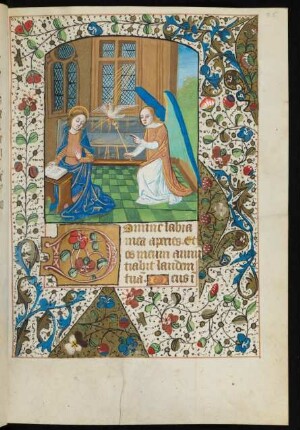 Domine labia
mea aperies. Et
os meum annun
tiabit laudem
tua. Deus i